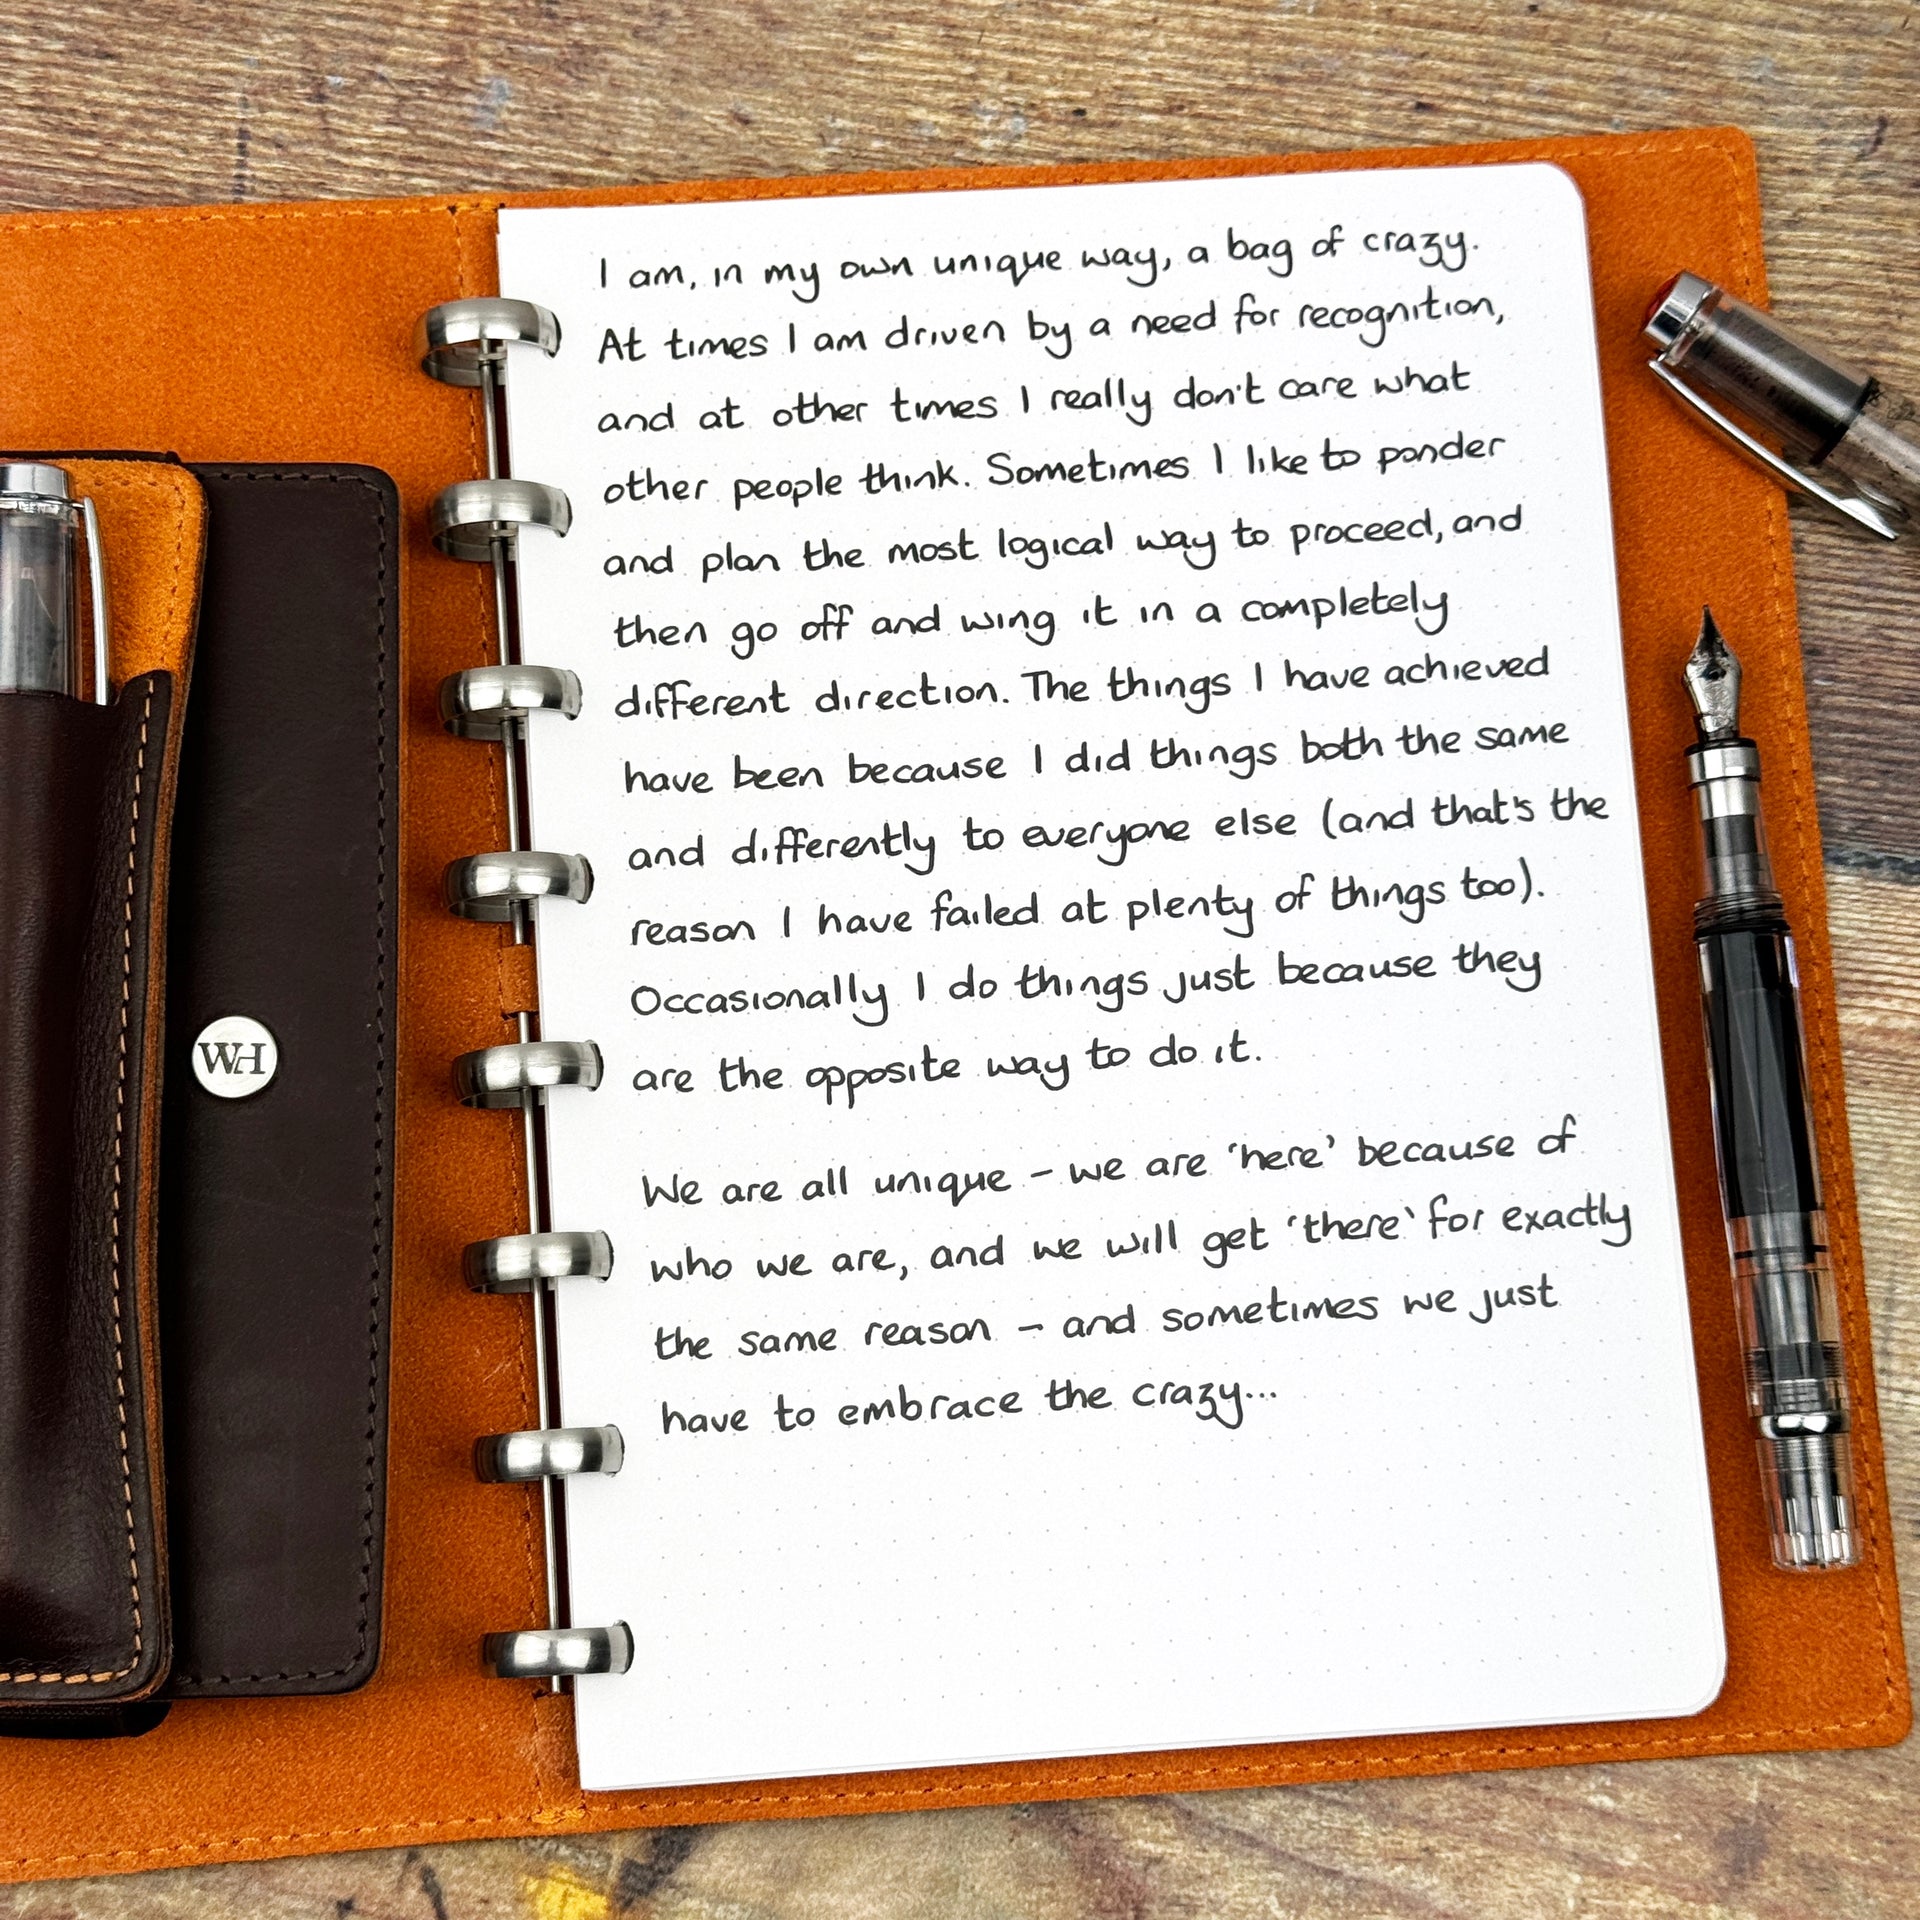 I am, in my own unique way, a bag of crazy.
At times I am driven by a need for recognition,
and at other times I really don't care what
other people think. Sometimes I like to ponder
and plan the most logical way to proceed, and
then go off and wing it in a completely
different direction. The things I have achieved
have been because I did things both the same
and differently to everyone else (and that's the
reason I have failed at plenty of things too).
Occasionally I do things just because they
are the opposite way to do it.
We are all unique – we are 'here' because of
who we are, and we will get 'there' for exactly
the same reason – and sometimes we just
have to embrace the crazy...
WH